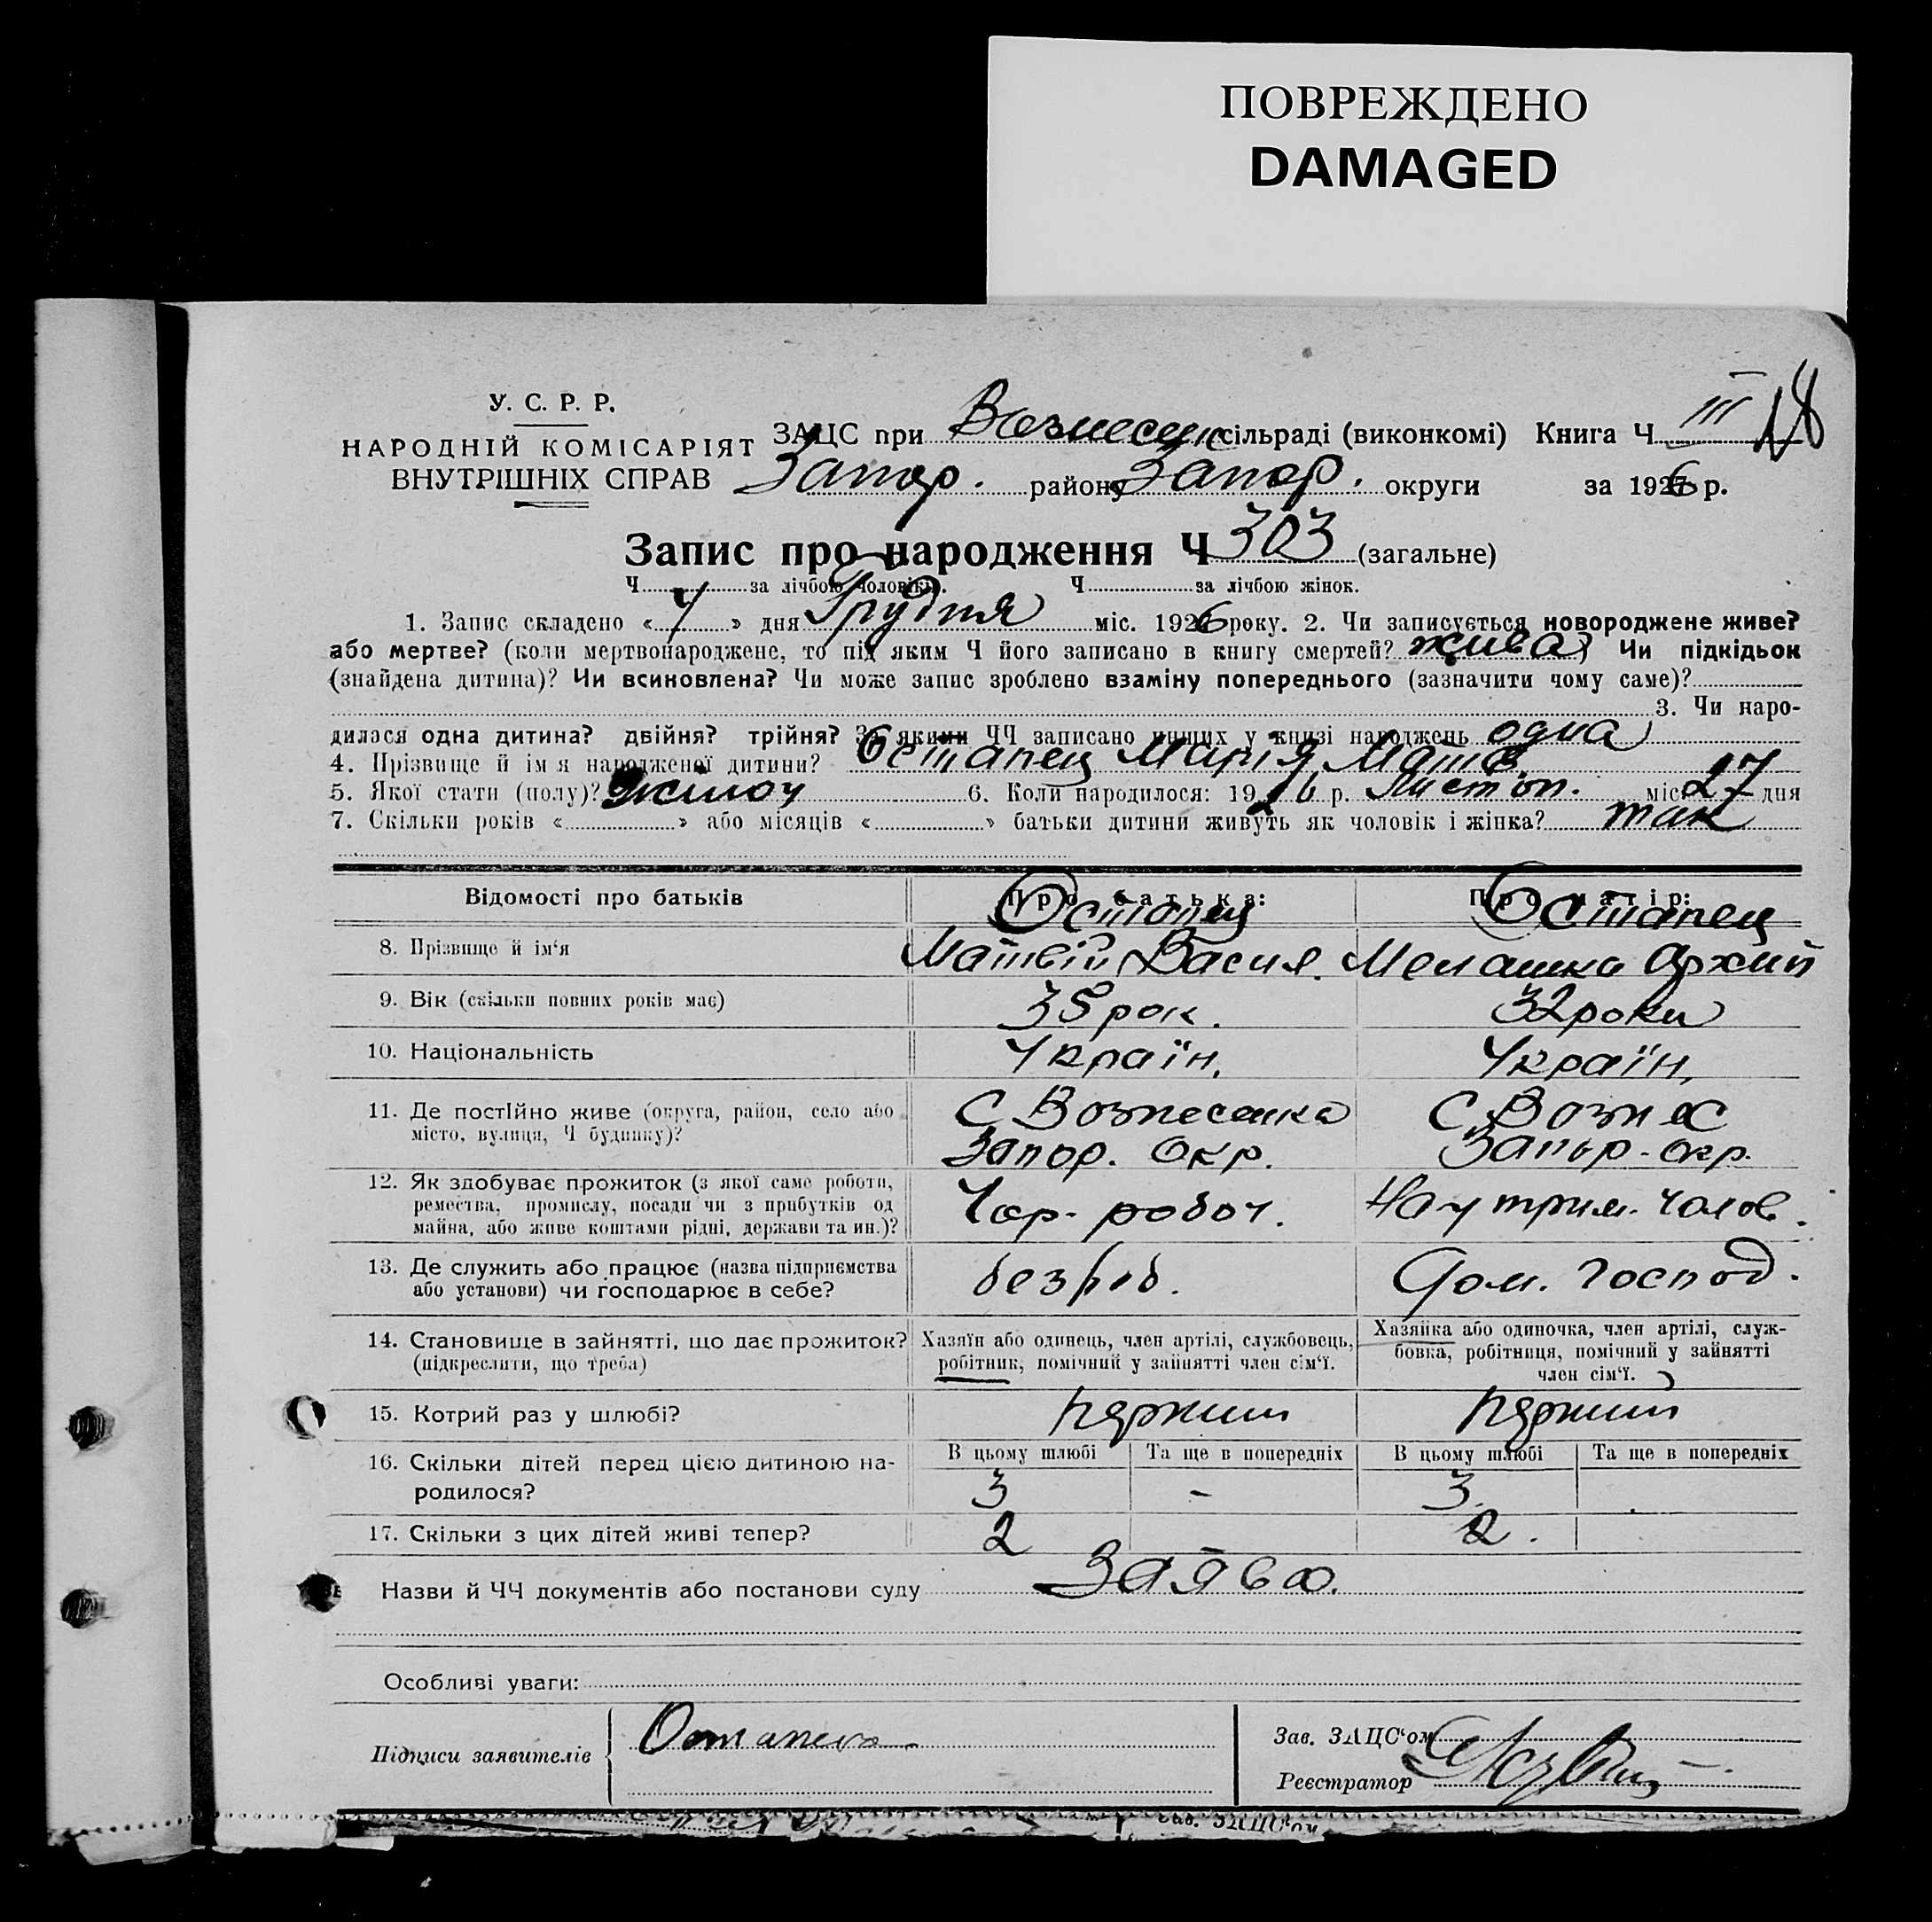 ПОВРЕЖДЕНО
DAMAGED
У. С. Р. Р.
НАРОДНІЙ КОМІСАРІЯТ
ВНУТРІШНІХ СПРАВ
ЗАЦС при Вознесенс сільраді (виконкомі) Книга Ч III 18
Запор. району Запор. округи за 1926 р.
Запис про народження Ч 303 (загальне)
Ч за лічбою чоловіків. Ч за лічбою жінок.
1. Запис складено «4» дня Грудня міс. 1926 року. 2. Чи записується новороджене живе?
або мертве? (коли мертвонароджене, то під яким Ч його записано в книгу смертей? жива Чи підкідьок
(знайдена дитина)? Чи всиновлена? Чи може запис зроблено взаміну попереднього (зазначити чому саме)?
3. Чи наро-
дилася одна дитина? двійня? трійня? За якими ЧЧ записано инших у книзі народжень одна
4. Прізвище й ім'я народженої дитини? Остапец Марія Матв.
5. Якої стати (полу)? жіноч 6. Коли народилося: 1926 р. Листоп. міс. 27 дня
7. Скільки років « » або місяців « » батьки дитини живуть як чоловік і жінка? так
Відомості про батьків
Про батька:
Про матір:
8. Прізвище й ім'я
Остапец
Матвій Васил.
Остапец
Мелашка Архип
9. Вік (скільки повних років має)
35 рок.
32 роки
10. Національність
Україн.
Україн.
11. Де постійно живе (округа, район, село або
місто, вулиця, Ч будинку)?
С Вознесенка
Запор. Окр.
С Вознес
Запор. окр.
12. Як здобуває прожиток (з якої саме роботи,
ремества, промислу, посади чи з прибутків од
майна, або живе коштами рідні, держави та ин.)?
Чор. робоч.
На утрим. чолов.
13. Де служить або працює (назва підприємства
або установи) чи господарює в себе?
безроб.
Дом. господ.
14. Становище в зайнятті, що дає прожиток?
(підкреслити, що треба)
Хазяїн або одинець, член артілі, службовець,
робітник, помічний у зайнятті член сім'ї.
Хазяйка або одиночка, член артілі, служ-
бовка, робітниця, помічний у зайнятті
член сім'ї.
15. Котрий раз у шлюбі?
перший
перший
16. Скільки дітей перед цією дитиною на-
родилося?
В цьому шлюбі
Та ще в попередніх
В цьому шлюбі
Та ще в попередніх
3
-
3
17. Скільки з цих дітей живі тепер?
2
2.
Назви й ЧЧ документів або постанови суду Заява.
Особливі уваги:
Підписи заявителів
Зав. ЗАЦС'ом
Реєстратор
Зав. ЗАЦС'ом